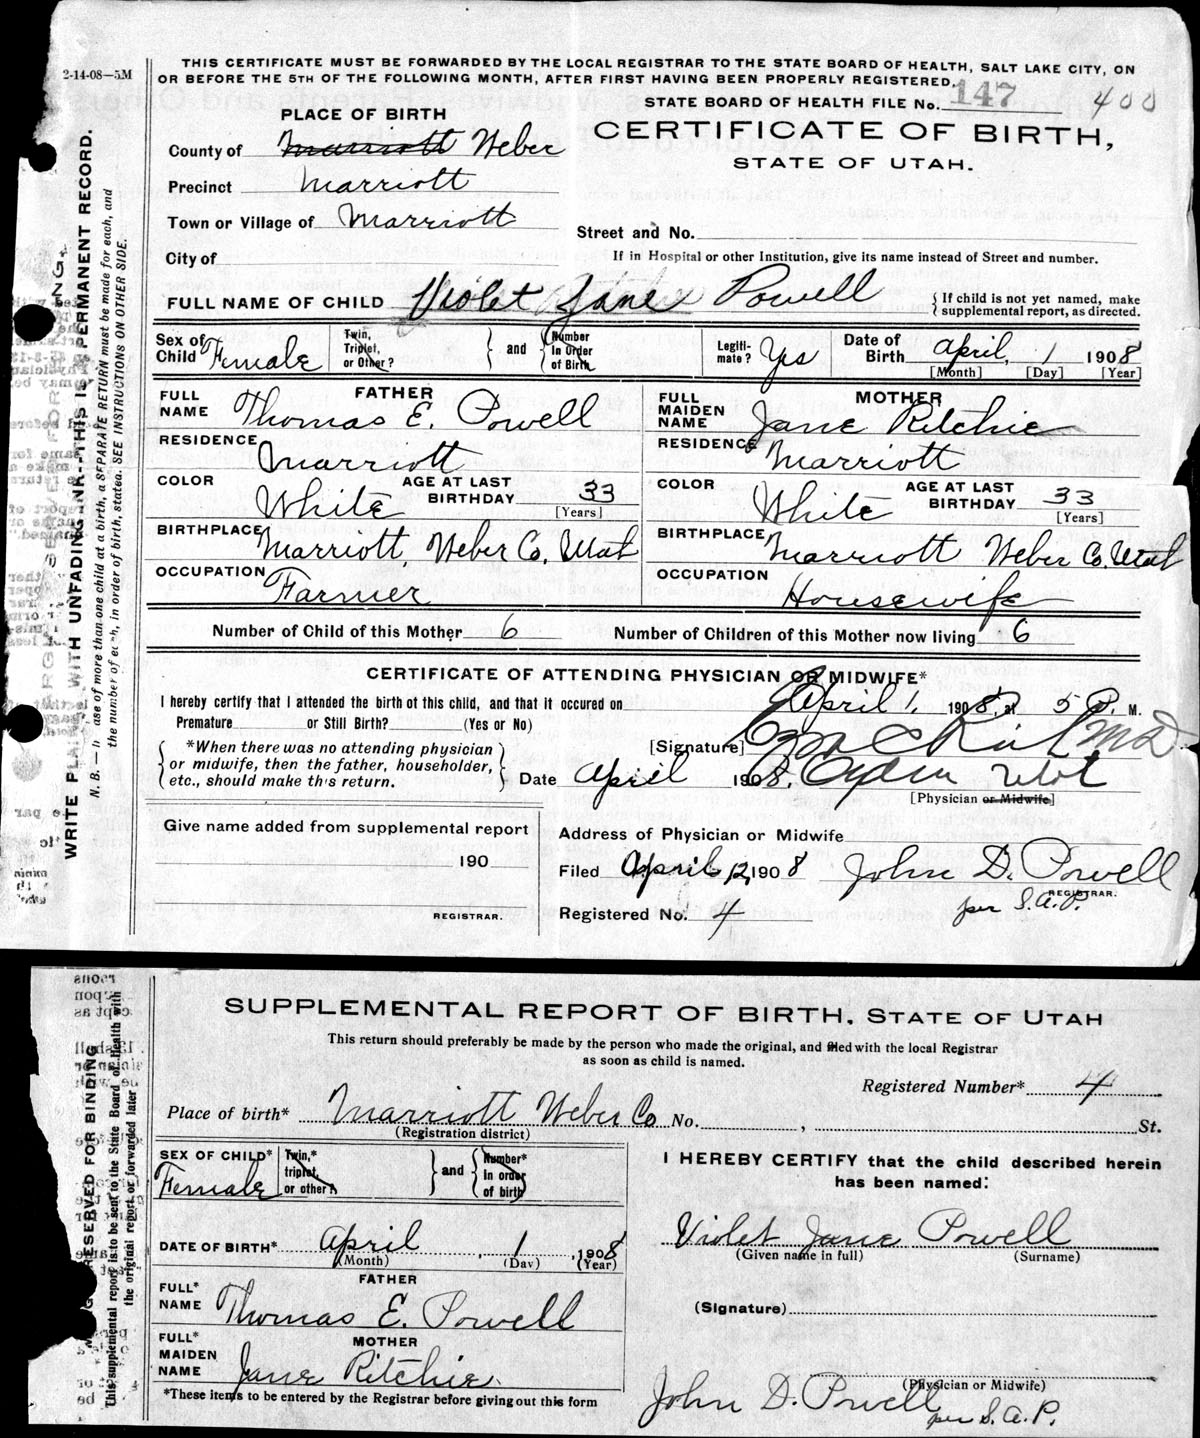 2-14-08—5M
THIS CERTIFICATE MUST BE FORWARDED BY THE LOCAL REGISTRAR TO THE STATE BOARD OF HEALTH, SALT LAKE CITY, ON
OR BEFORE THE 5TH OF THE FOLLOWING MONTH, AFTER FIRST HAVING BEEN PROPERLY REGISTERED.
STATE BOARD OF HEALTH FILE No. 147 400
PLACE OF BIRTH
CERTIFICATE OF BIRTH,
STATE OF UTAH.
County of Marriott Weber
Precinct Marriott
Town or Village of Marriott
Street and No.
City of
If in Hospital or other Institution, give its name instead of Street and number.
FULL NAME OF CHILD Violet Jane Powell
{ If child is not yet named, make
supplemental report, as directed.
Sex of Child Female
Twin, Triplet, or Other? } and { Number In Order of Birth
Legiti-mate? Yes
Date of Birth April, 1 1908
[Month] [Day] [Year]
FATHER
FULL NAME Thomas E. Powell
RESIDENCE Marriott
COLOR White
AGE AT LAST BIRTHDAY 33
[Years]
BIRTHPLACE Marriott, Weber Co. Utah
OCCUPATION Farmer
MOTHER
FULL MAIDEN NAME Jane Ritchie
RESIDENCE Marriott
COLOR White
AGE AT LAST BIRTHDAY 33
[Years]
BIRTHPLACE Marriott Weber Co. Utah
OCCUPATION Housewife
Number of Child of this Mother 6 Number of Children of this Mother now living 6
CERTIFICATE OF ATTENDING PHYSICIAN OR MIDWIFE*
I hereby certify that I attended the birth of this child, and that it occured on April 1, 1908, at 5 P. M.
Premature or Still Birth? (Yes or No)
{ *When there was no attending physician
or midwife, then the father, householder,
etc., should make this return. }
[Signature] M.D.
Date April 1908. Ogden Utah
[Physician or Midwife]
Give name added from supplemental report
190
REGISTRAR.
Address of Physician or Midwife
Filed April 12, 1908 John D. Powell
REGISTRAR.
per S.A.P.
Registered No. 4
WRITE PLAINLY WITH UNFADING INK—THIS IS A PERMANENT RECORD.
N. B.—In case of more than one child at a birth, a SEPARATE RETURN must be made for each, and
the number of each, in order of birth, stated. SEE INSTRUCTIONS ON OTHER SIDE.
SUPPLEMENTAL REPORT OF BIRTH, STATE OF UTAH
This return should preferably be made by the person who made the original, and filed with the local Registrar
as soon as child is named.
Registered Number* 4
Place of birth* Marriott Weber Co No. , St.
(Registration district)
SEX OF CHILD* Female
Twin,* triplet, or other? } and { Number* in order of birth
I HEREBY CERTIFY that the child described herein
has been named:
Violet Jane Powell
(Given name in full) (Surname)
DATE OF BIRTH* April, 1, 1908
(Month) (Day) (Year)
FATHER
FULL* NAME Thomas E. Powell
(Signature)
MOTHER
FULL* MAIDEN NAME Jane Ritchie.
(Physician or Midwife)
*These items to be entered by the Registrar before giving out this form
John D. Powell
per S.A.P.
RESERVED FOR BINDING
This supplemental report is to be sent to the State Board of Health with
the original report or forwarded later